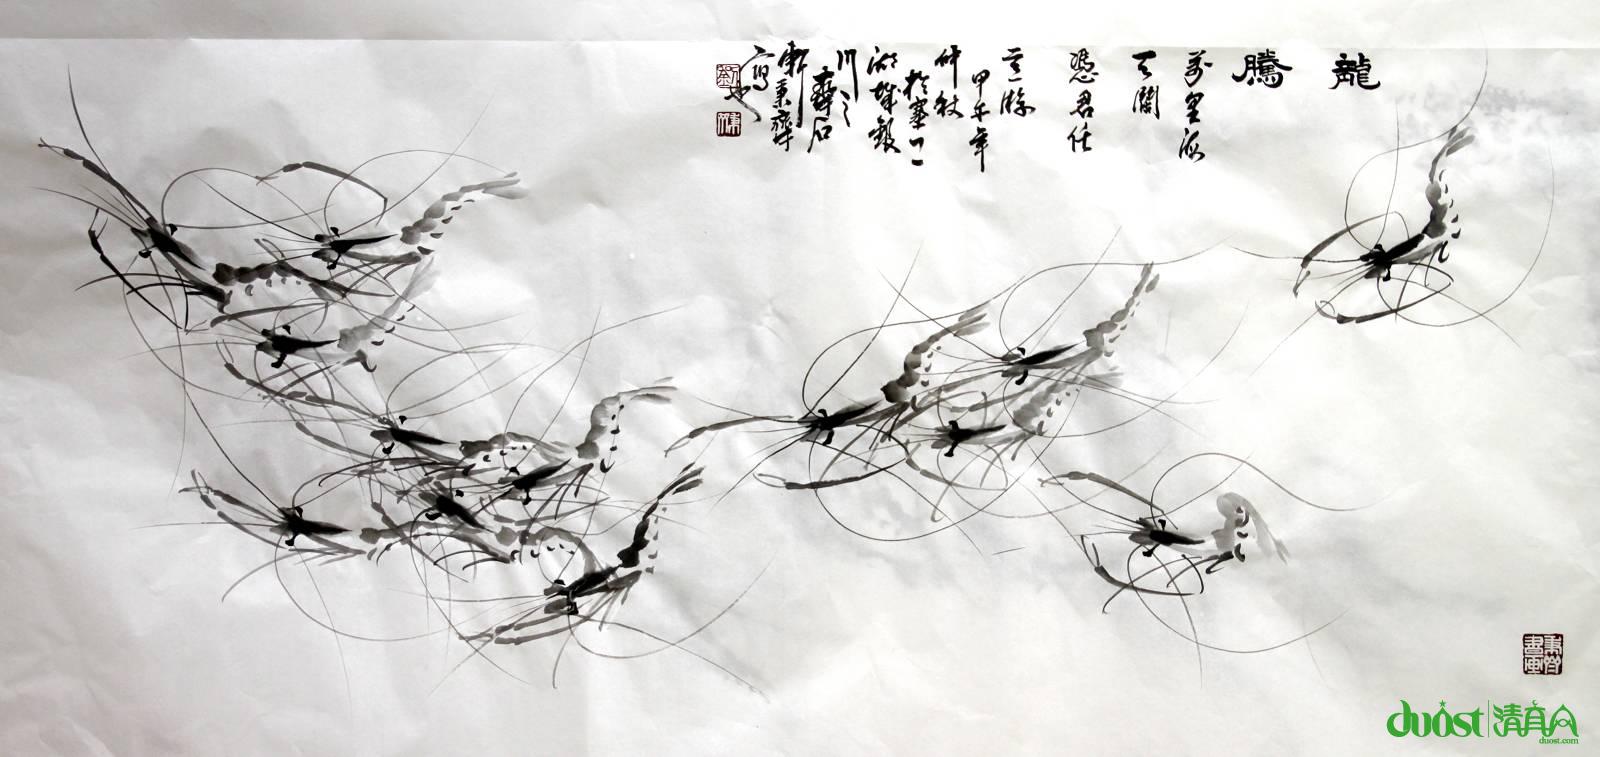 龍
騰
萬里海
天闊
憑君任
意游
甲午年
仲秋
於塞上
湖城銀
川之
齊石
軒秉齊
寫
duost
duost.com